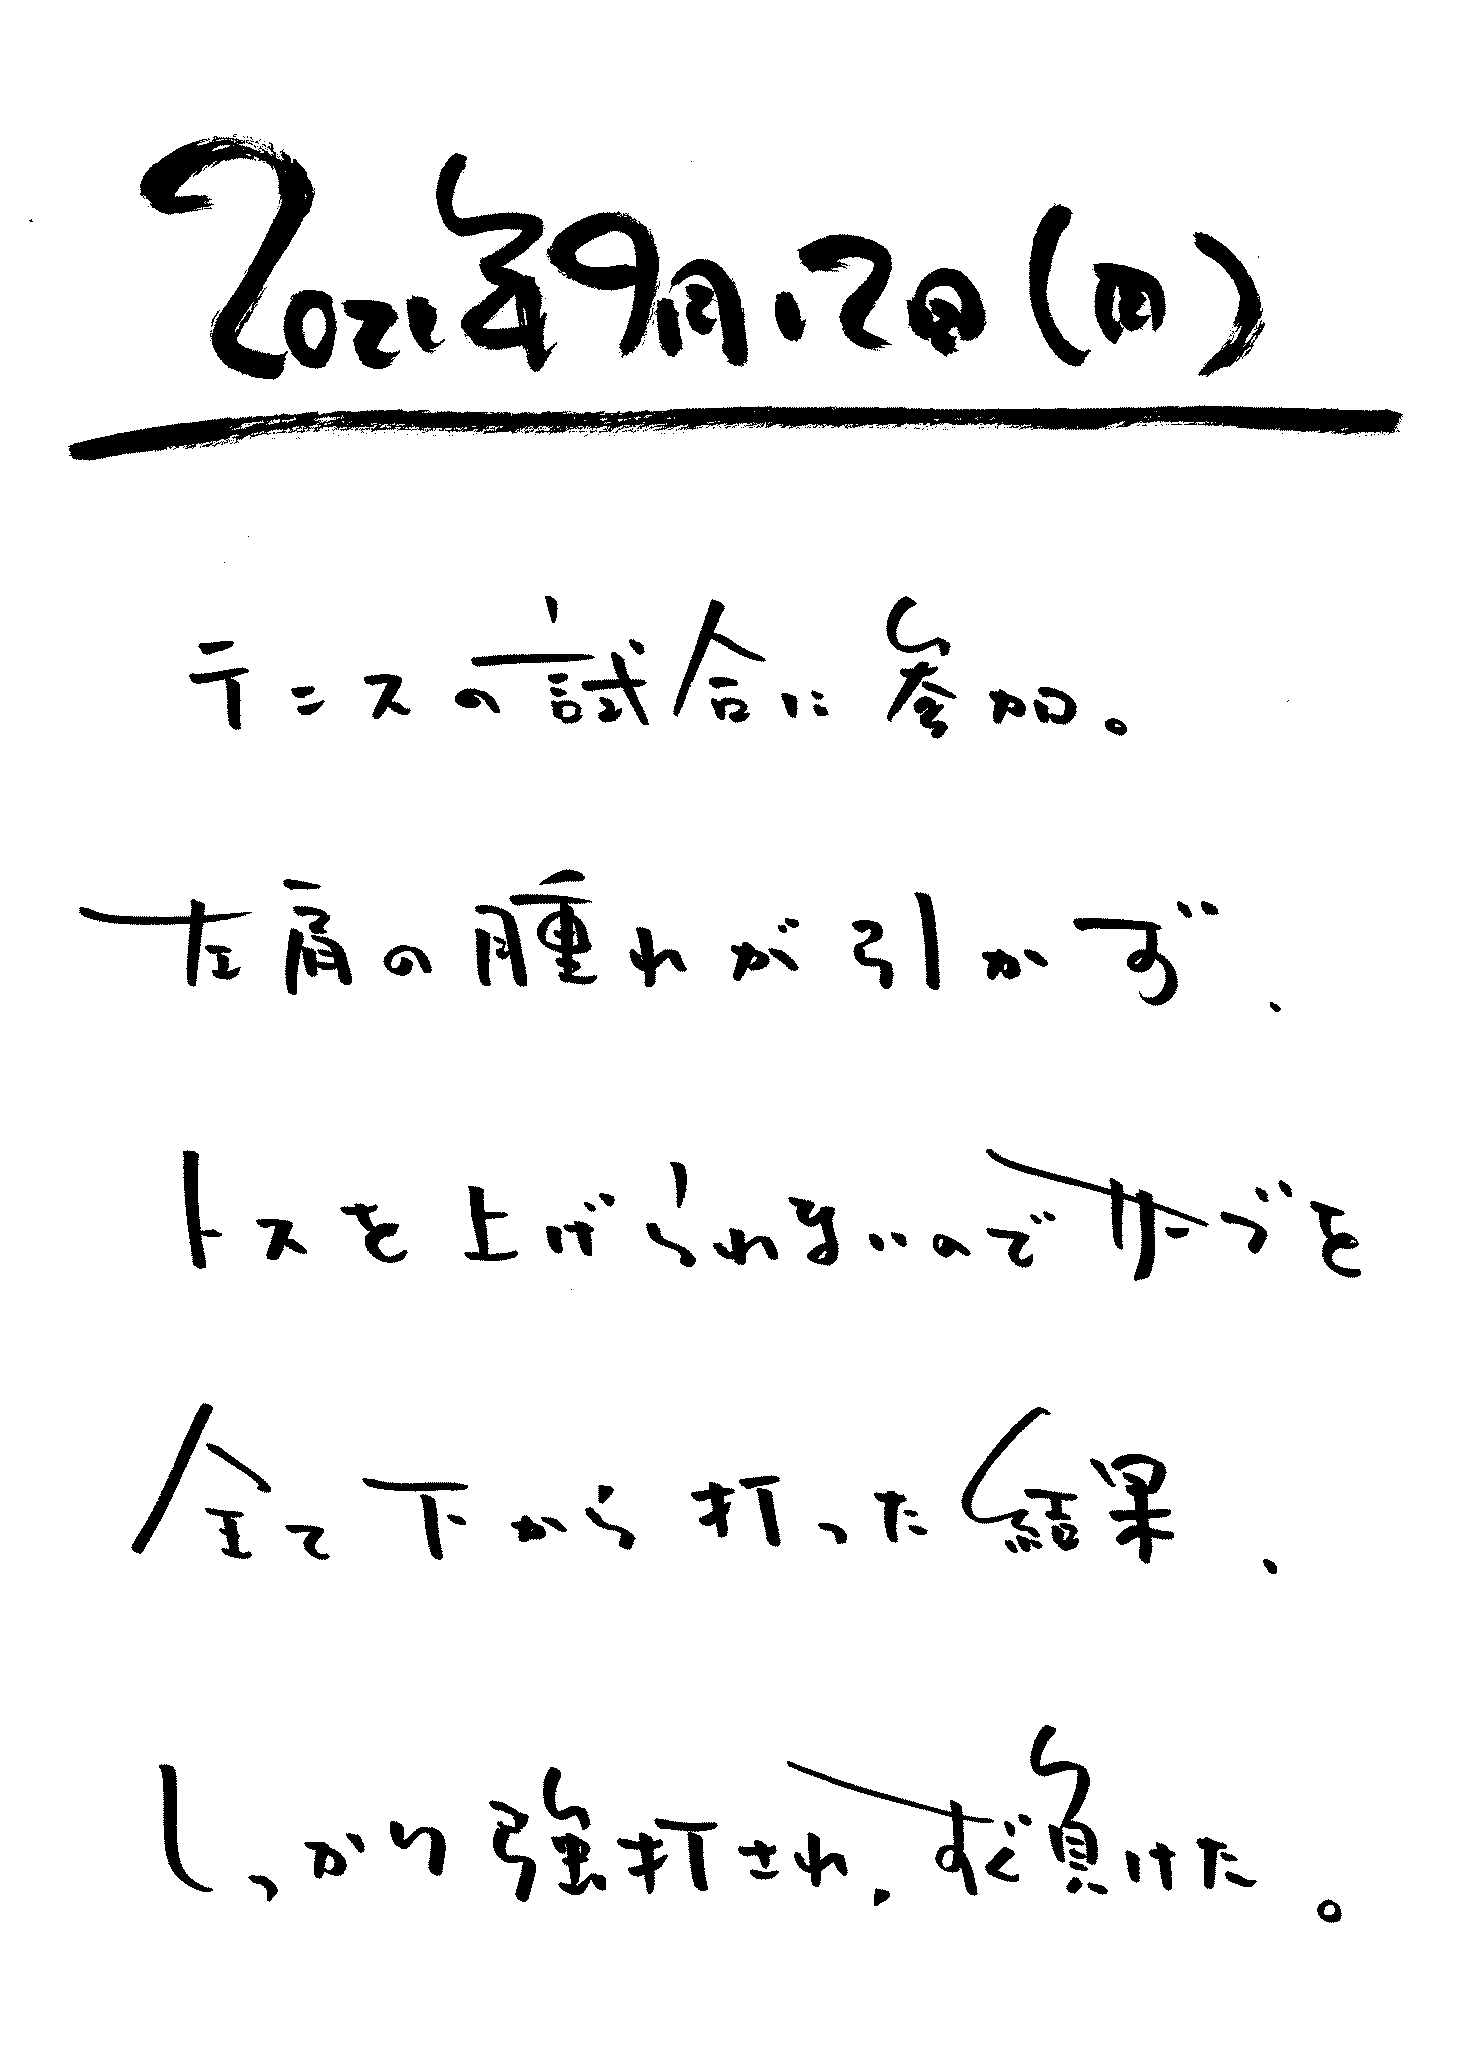 2021年9月12日(日)
テニスの試合に参加。
左肩の腫れが引かず、
トスを上げられないのでサーブを
全て下から打った結果、
しっかり強打され、すぐ負けた。